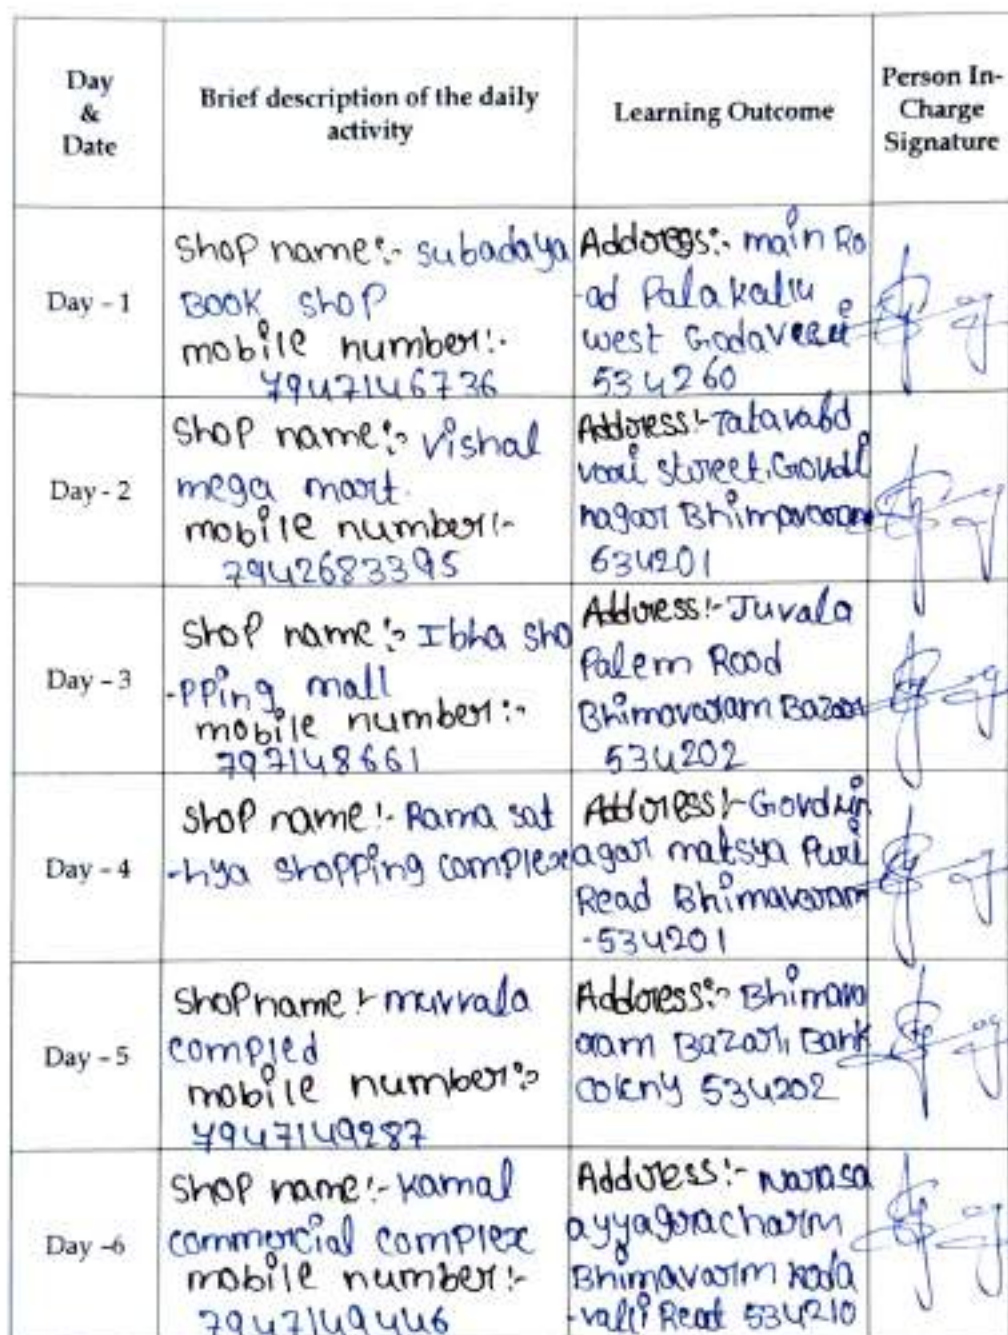 Day
&
Date
Brief description of the daily
activity
Learning Outcome
Person In-
Charge
Signature
Day - 1
Shop name:- subadaya
BOOK shop
mobile number:-
7947146736
Address:- main Ro
-ad Palakallu
west Godaveri
534260
Day - 2
Shop name:- vishal
mega mart.
mobile number:-
7942683395
Address:-
street, Govdl
nagar Bhimavaram
534201
Day - 3
Shop name:- Ibha sho
-pping mall
mobile number:-
797148661
Address:- Juvala
Palem Rood
Bhimavaram Bazaar
534202
Day - 4
Shop name:- Rama sat
-hya shopping complex
Address:- Govdlin
agar matsya Puri
Read Bhimavaram
-534201
Day - 5
Shop name:- mavrala
compled
mobile number:-
7947149287
Address:- Bhimava
aram Bazar, Bank
colony 534202
Day -6
Shop name:- kamal
commercial complex
mobile number:-
7947149446
Address:- Narasa
ayyagracharm
Bhimavarm koda
-valli Read 534210